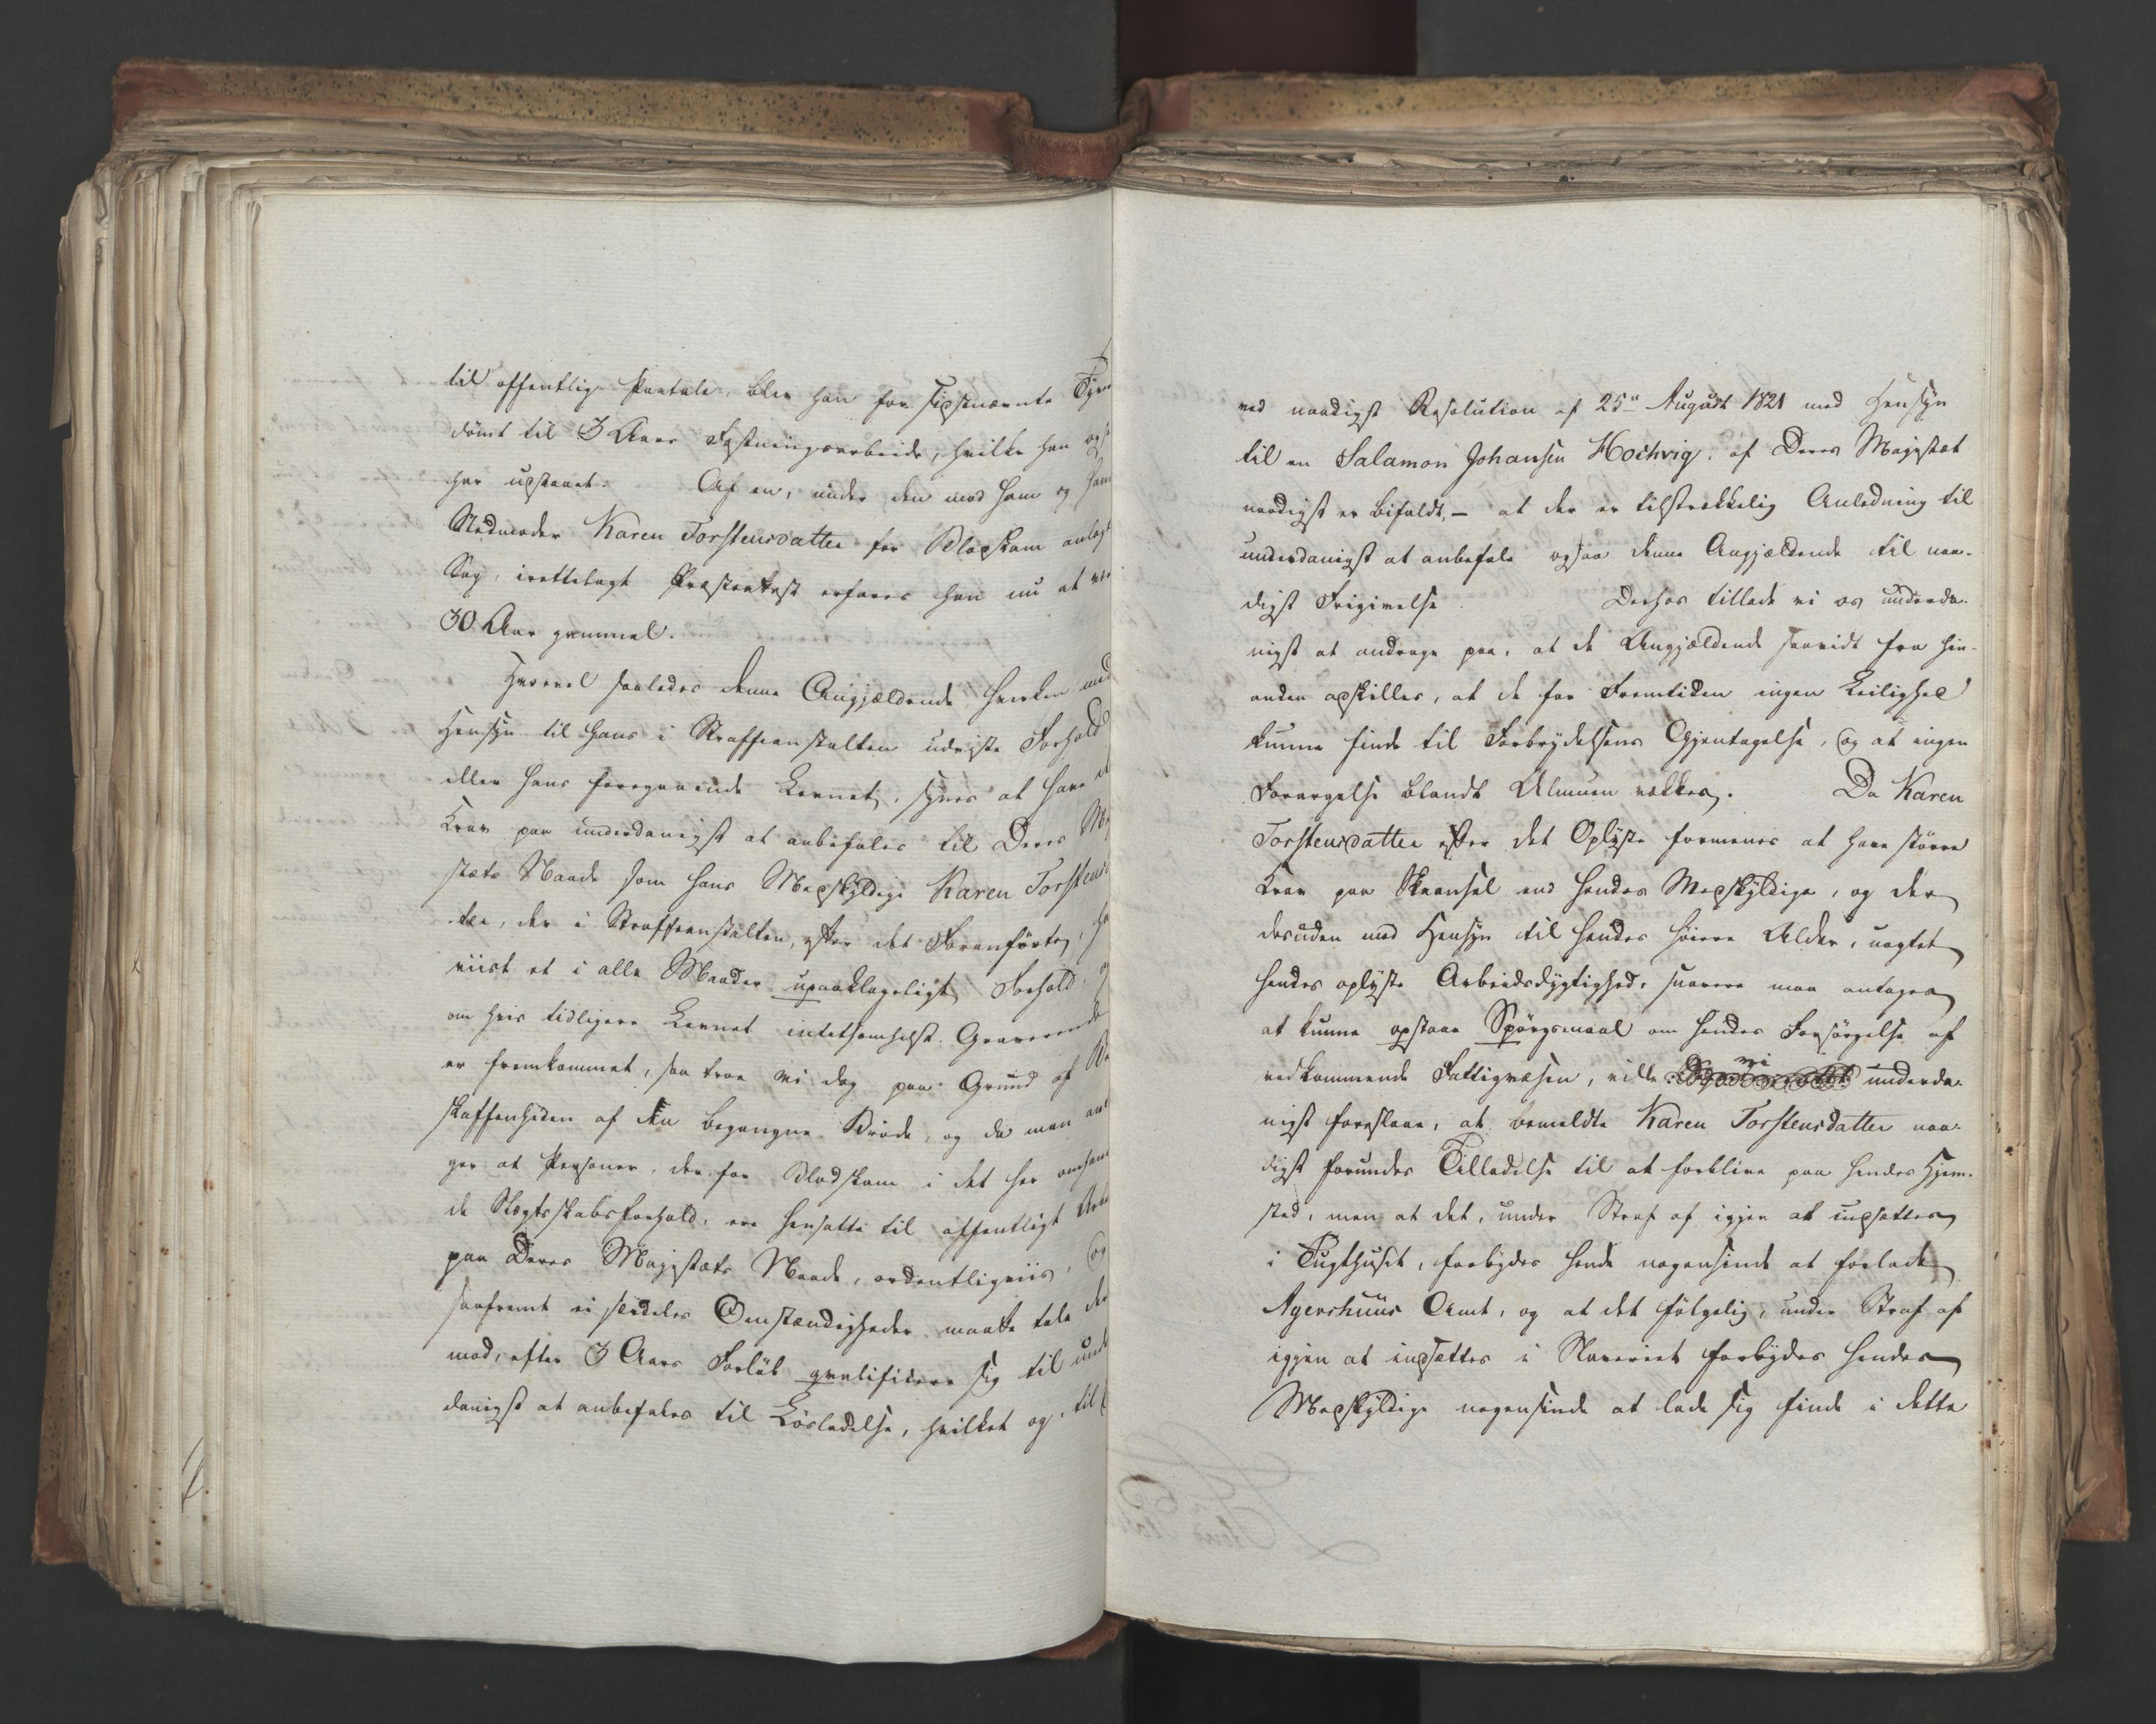 til offentlig Paatale, blev han for sidstnævnte Tyve
dömt til 3 Aars Fæstningsarbeide, hvilke han og
har udstaaet. Af en, under den mod ham og hans
Stedmoder Karen Torstensdatter for Blodskam anlagt
Sag, irettelagt Præsteattest erfares han nu at væ
30 Aar gammel.
Hvorvel saaledes denne Angjældende hverken med
Hensyn til hans i Straffeanstalten udviste Forhold
eller hans foregaaende Levnet, synes at have
Krav paa underdanigst at anbefales til Deres Ma
jstæts Naade som hans Medskyldige Karen Torstensd
ter, der i Straffeanstalten, efter det Foranförte, ha
viist et i alle Maader upaaklageligt Forhold, og
om hvis tidligere Levnet intetsomhelst Graverende
er fremkommet, saa troe vi dog paa Grund af Be
skaffenheden af den begangne Bröde, og da man an
ger at Personer, der for Blodskam i det her omhan
de Slægtskabsforhold, ere hensatte til offentligt Arb
paa Deres Majestæts Naade, ordentligviis, og
saafremt ei særdeles Omstændigheder maatte tale der
mod, efter 3 Aars Forlöb qvalificere sig til unde
danigst at anbefales til Lösladelse, hvilket og, til
ved naadigst Resolution af 25de August 1821 med Hensyn
til en Salamon Johansen Hochvig, af Deres Majestæt
naadigst er bifaldt, – at der er tilstrækkelig Anledning til
underdanigst at anbefale ogsaa denne Angjældende til naa-
digst Frigivelse. Derhos tillade vi os underda-
nigst at andrage paa, at de Angjældende saavidt fra hin-
anden adskilles, at de for Fremtiden ingen Leilighed
kunne finde til Forbrydelsens Gjentagelse, og at ingen
Forargelse blandt Almuen vækkes. Da Karen
Torstensdatter efter det Oplyste formenes at have större
Krav paa Skaansel end hendes Medskyldige, og der
desuden med Hensyn til hendes höiere Alder, uagtet
hendes oplyste Arbeidsdygtighed, snarere maa antages
at kunne opstaae Spörgsmaal om hendes Forsörgelse af
vedkommende Fattigvæsen, ville vi underda-
nigst foreslaae, at bemeldte Karen Torstensdatter naa-
digst forundes Tilladelse til at forblive paa hendes Hjem-
sted, men at det, under Straf af igjen at indsættes
i Tugthuset, forbydes hende nogensinde at forlade
Agershuus Amt, og at det fölgelig, under Straf af
igjen at indsættes i Slaveriet forbydes hendes
Medskyldige nogensinde at lade sig finde i dette